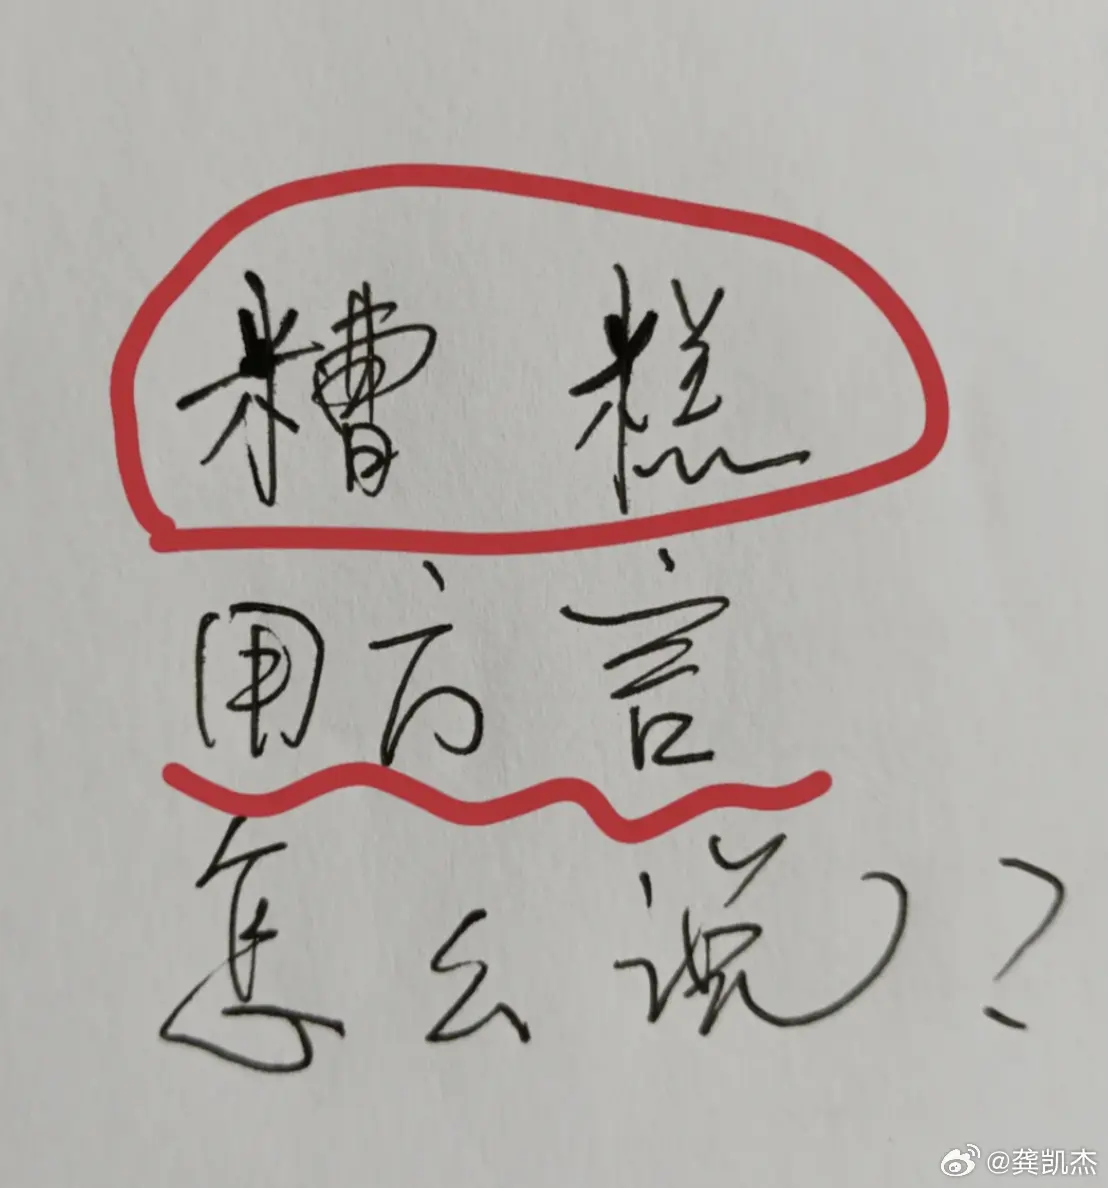 糟糕
用方言
怎么说？
@龚凯杰